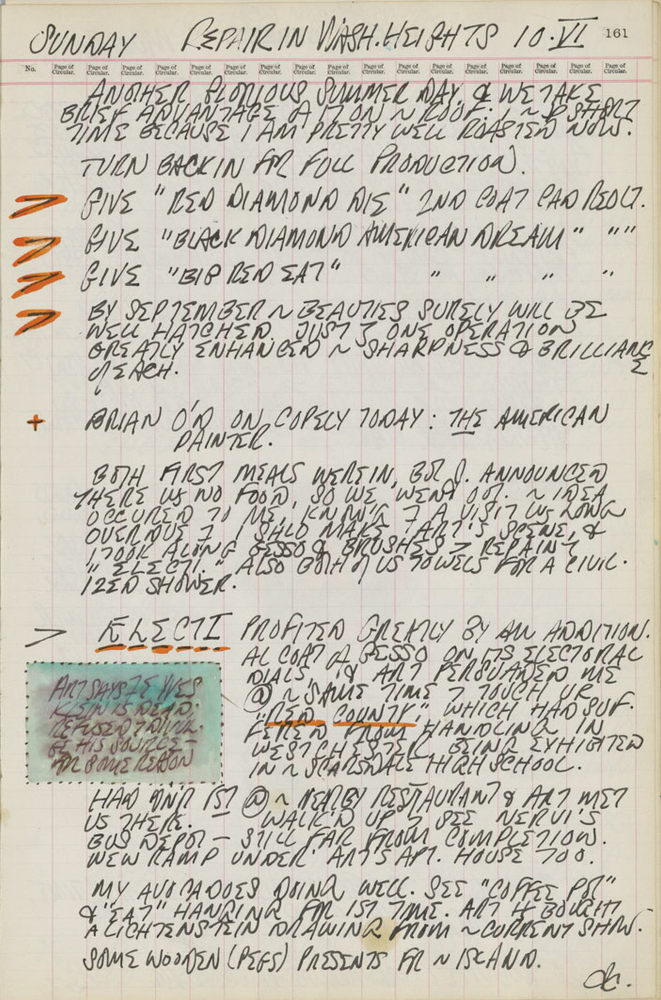 SUNDAY REPAIR IN WASH. HEIGHTS 10·VI 161
No. Page of Circular. Page of Circular. Page of Circular. Page of Circular. Page of Circular. Page of Circular. Page of Circular. Page of Circular. Page of Circular. Page of Circular. Page of Circular. Page of Circular. Page of Circular. Page of Circular. Page of Circular.
ANOTHER GLORIOUS SUMMER DAY & WE TAKE
BRIEF ADVANTAGE OF IT ON ~ ROOF.
TIME BECAUSE I AM PRETTY WELL ROASTED NOW.
TURN BACK IN FOR FULL PRODUCTION.
> GIVE "RED DIAMOND DIE" 2ND COAT CAD RED LT.
> GIVE "BLACK DIAMOND AMERICAN DREAM" " "
> GIVE "BIG RED EAT" " " " "
> BY SEPTEMBER ~ BEAUTIES SURELY WILL BE
WELL HATCHED. JUST ONE OPERATION
GREATLY ENHANCED ~ SHARPNESS & BRILLIANCE
OF EACH.
+ BRIAN O'D ON COPELY TODAY: THE AMERICAN
PAINTER.
BOTH FIRST MEALS WERE IN, BUT J. ANNOUNCED
THERE WS NO FOOD, SO WE WENT OUT. ~ IDEA
OCCURED TO ME, KNOW'G 7 A VISIT WS LONG
OVERDUE 7 I SHLD MAKE 7 ART'S SCENE, &
I TOOK ALONG GESSO & BRUSHES 7 REPAINT
"ELECTI." ALSO BOTH OF US TOWELS FOR A CIVIL-
IZED SHOWER.
> ELECTI PROFITED GREATLY BY AN ADDITION-
AL COAT OF GESSO ON ITS ELECTORAL
DIALS & ART PERSUADED ME
@ ~ SAME TIME 7 TOUCH UP
"RED COUNTY" WHICH HAD SUF-
FERED FROM HANDLING IN
WESTCHESTER BEING EXHIBITED
IN ~ SCARSDALE HIGH SCHOOL.
ART SAYS YVES
KLEIN IS DEAD.
REFUSED 7 DIVULGE HIS SOURCE—
FOR SOME REASON
HAD DINR 1ST @ ~ NEARBY RESTAURANT & ART MET
US THERE. WALK'D UP 7 SEE NERVI'S
BUS DEPOT — STILL FAR FROM COMPLETION.
NEW RAMP UNDER ART'S APT. HOUSE TOO.
MY AVOCADOES DOING WELL. SEE "COFFEE POT"
& "EAT" HANGING FOR 1ST TIME. ART H BOUGHT
A LICHTENSTEIN DRAWING FROM ~ CURRENT SHOW.
SOME WOODEN (PEGS) PRESENTS FR ~ ISLAND.